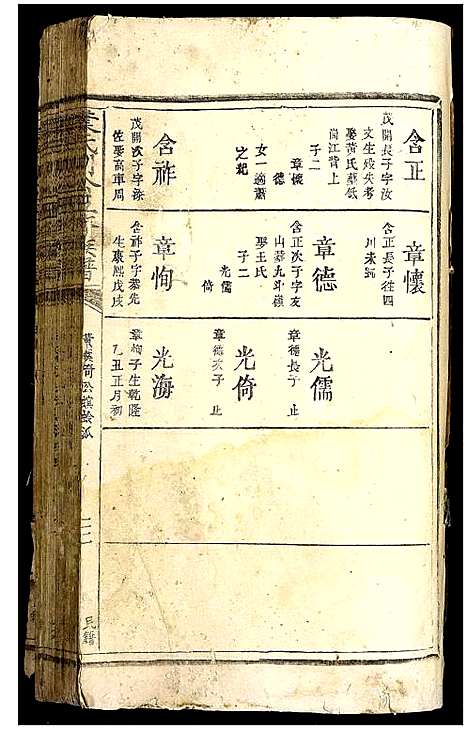 含正
茂開長子字汝
文生歿失考
娶黃氏葬砥
尚江背上
子二
章懷
德
女一適蕭
之杞
含祚
茂開次子字
佐娶高車周
章懷
含正長子徃四
川未
章德
含正次子字友
山葬九斗嶺
娶王氏
子二
光儒
倚
章恂
含祚子字恭先
生康熙戊戌
光儒
章德長子 止
光倚
章德次子 止
光海
章恂子生乾隆
乙丑正月初
民籍